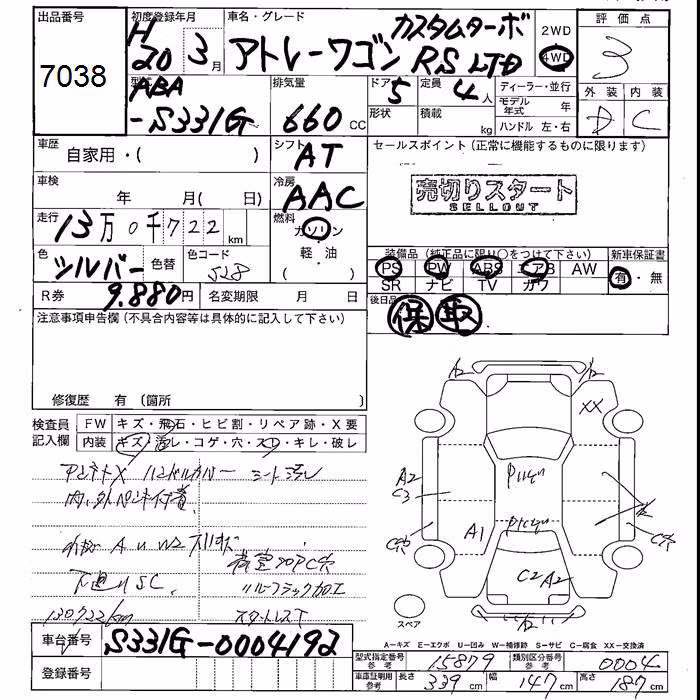 出品番号
7038
初度登録年月
H
20 3月
車名・グレード
カスタムターボ
アトレーワゴン RS LTD
2WD
4WD
評価点
3
外装 内装
D C
型式
ABA
-S331G
排気量
660 CC
ドア
5
形状
定員
4人
積載
kg
ディーラー・並行
モデル年式 年
ハンドル 左・右
車歴
自家用・( )
シフト
AT
セールスポイント (正常に機能するものに限ります)
売切りスタート
SELLOUT
車検
年 月( 日)
冷房
AAC
走行
13万0千722km
燃料
ガソリン
軽・油
( )
色
シルバー
色替
色コード
S28
装備品 (純正品に限り○をつけて下さい)
新車保証書
PS PW ABS エアB AW
有・無
SR ナビ TV カワ
R券
9.880円
名変期限 月 日
後日品
保 取
注意事項申告欄 (不具合内容等は具体的に記入して下さい)
修復歴 有 (箇所 )
検査員記入欄
FW キズ・飛石・ヒビ割・リペア跡・X要
内装 キズ・汚レ・コゲ・穴・スレ・キレ・破レ
アンテナX ハンドルカバー シート汚レ
内、外ペイント付着
下廻りSC
130722km
スタットレスT
XX
A2
C3
A1
C2 A2
スペア
車台番号
S331G-0004192
登録番号
A-キズ E-エクボ U-凹み W-補修跡 S-サビ C-腐食 XX-交換済
型式指定番号 参考
15879
類別区分番号 参考
0004
車庫証明用 参考
長さ 339cm 幅 147cm 高さ 187cm